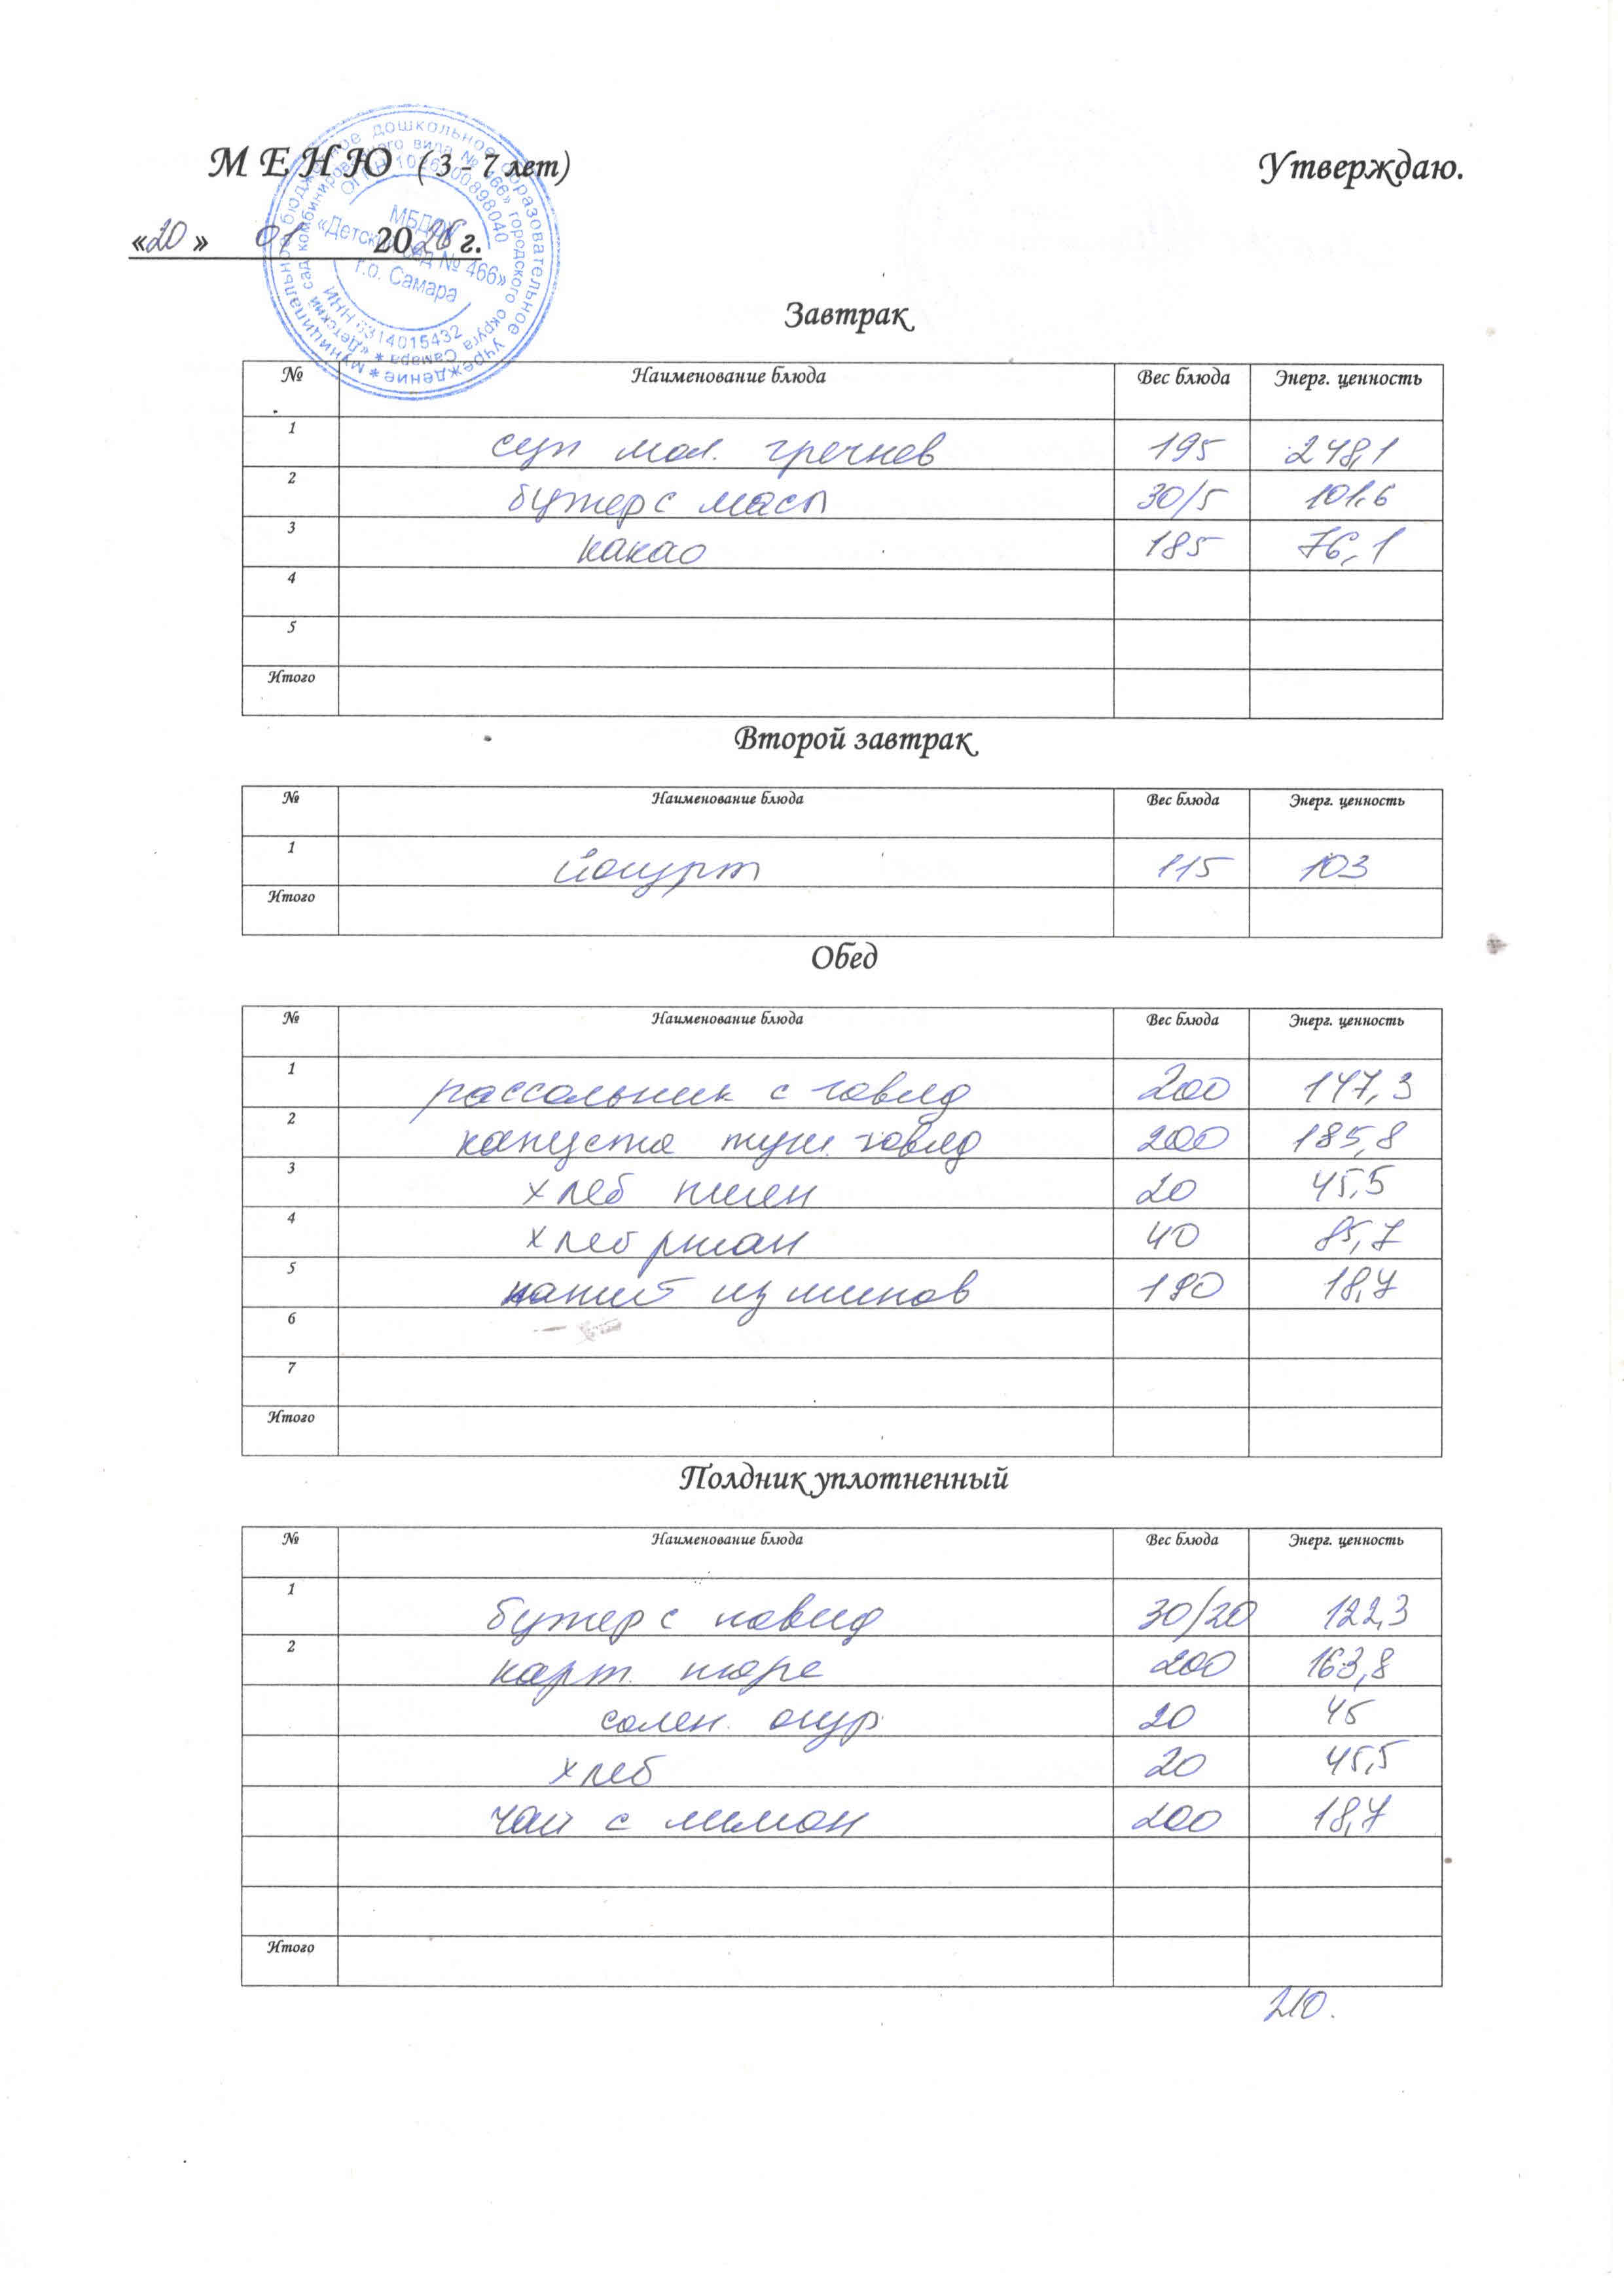 М Е Н Ю ( 3 - 7 лет) Утверждаю.
«20» 01 2026 г.
муниципальное бюджетное дошкольное образовательное учреждение *
«Детский сад комбинированного вида № 466» городского округа Самара *
ИНН 6314015432
МБДОУ
«Детский сад № 466»
г.о. Самара
Завтрак
№ Наименование блюда Вес блюда Энерг. ценность
1 суп мол. гречнев 195 248,1
2 бутер с масл 30/5 101,6
3 какао 185 76,1
4
5
Итого
Второй завтрак
№ Наименование блюда Вес блюда Энерг. ценность
1 йогурт 115 103
Итого
Обед
№ Наименование блюда Вес блюда Энерг. ценность
1 рассольник с говяд 200 147,3
2 капуста туш. говяд 200 185,8
3 хлеб пшен 20 45,5
4 хлеб ржан 40 85,7
5 напит из шипов 190 18,7
6
7
Итого
Полдник уплотненный
№ Наименование блюда Вес блюда Энерг. ценность
1 бутер с повид 30/20 122,3
2 карт. пюре 200 163,8
солен. огур 20 45
хлеб 20 45,5
чай с лимон 200 18,7
Итого
210.